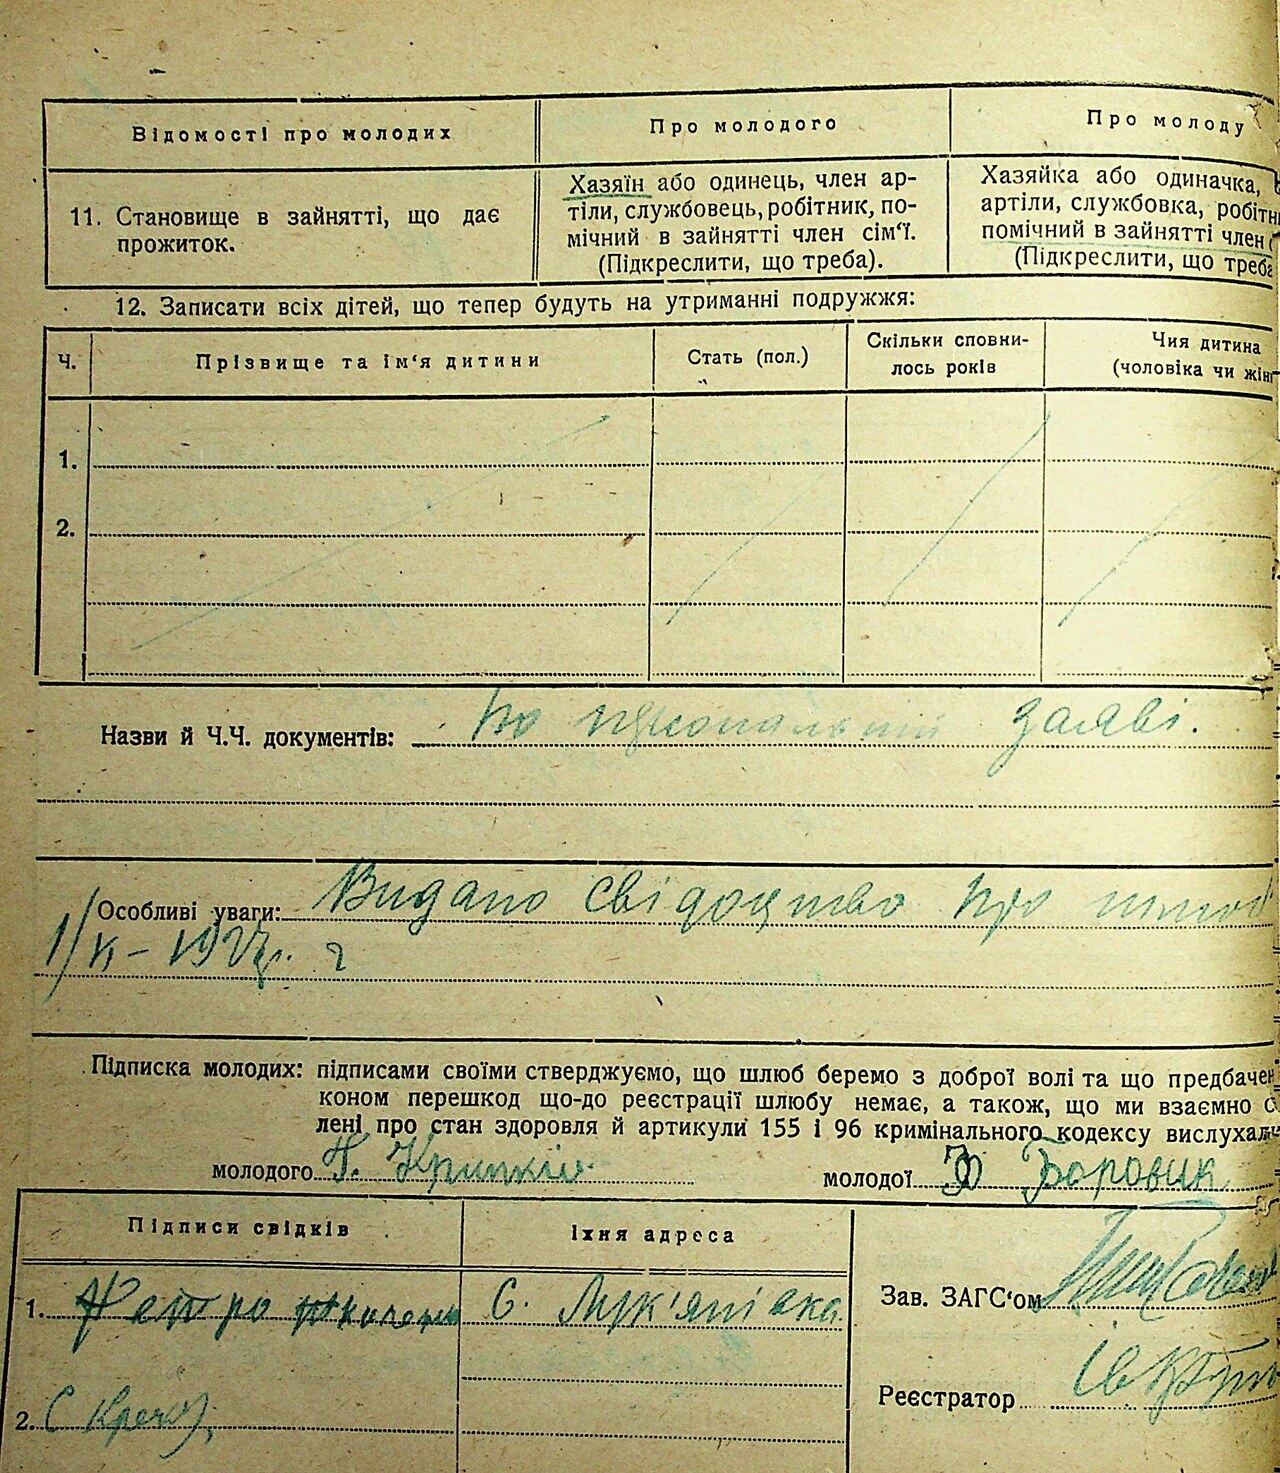 Відомості про молодих
Про молодого
Про молоду
11. Становище в зайнятті, що дає
прожиток.
Хазяїн або одинець, член ар-
тіли, службовець, робітник, по-
мічний в зайнятті член сім'ї.
(Підкреслити, що треба).
Хазяйка або одиначка,
артіли, службовка, робітн
помічний в зайнятті член
(Підкреслити, що треба
12. Записати всіх дітей, що тепер будуть на утриманні подружжя:
Ч.
Прізвище та ім'я дитини
Стать (пол.)
Скільки сповни-
лось років
Чия дитина
(чоловіка чи жін
1.
2.
Назви й Ч.Ч. документів: По заяві.
Особливі уваги: Видано свідоцтво про шлюб
1/VI-1927. г
Підписка молодих: підписами своїми стверджуємо, що шлюб беремо з доброї волі та що предбачен
коном перешкод що-до реєстрації шлюбу немає, а також, що ми взаємно о
лені про стан здоровля й артикули 155 і 96 кримінального кодексу вислухали
молодого П.
молодої Боровик
Підписи свідків
Їхня адреса
1. Петро
С. Лук'янівка
Зав. ЗАГС'ом
Реєстратор
2. С